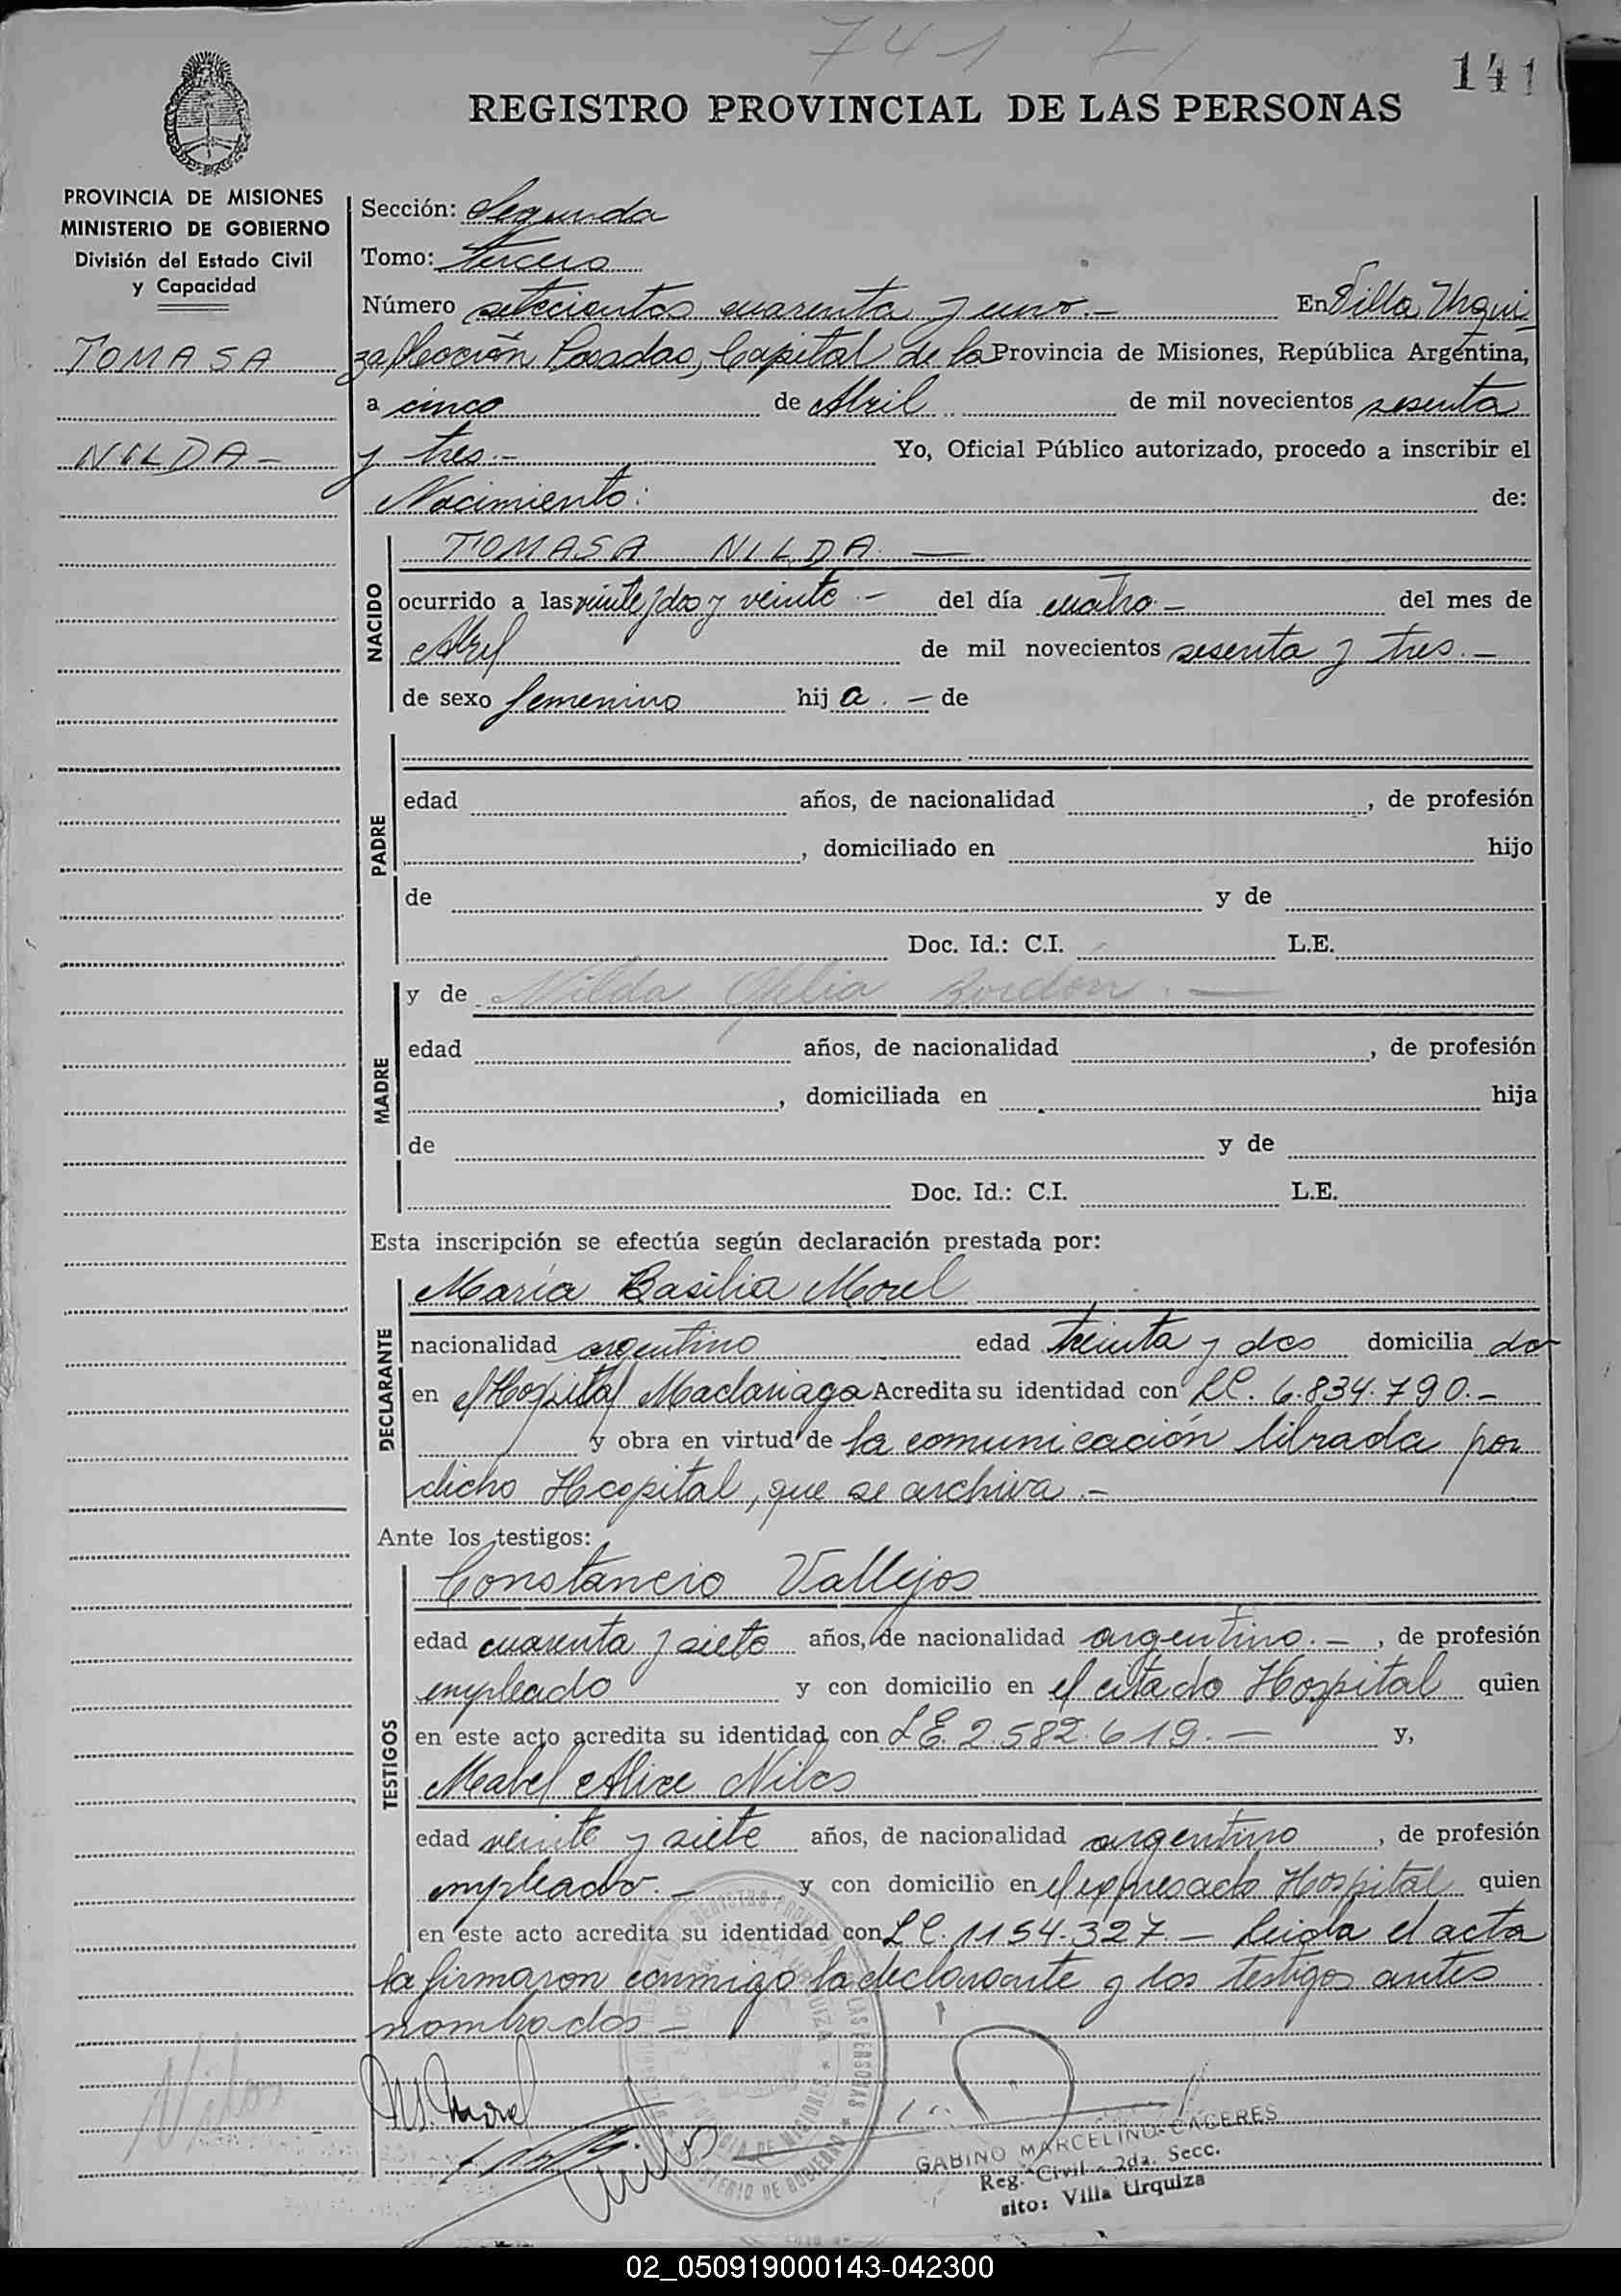 741
141
REGISTRO PROVINCIAL DE LAS PERSONAS
PROVINCIA DE MISIONES
MINISTERIO DE GOBIERNO
División del Estado Civil
y Capacidad
TOMASA
NILDA-
Sección: Segunda
Tomo: tercero
Número setecientos cuarenta y uno.- En Villa Urqui
za Sección Posadas, Capital de la Provincia de Misiones, República Argentina,
a cinco de Abril de mil novecientos sesenta
y tres.- Yo, Oficial Público autorizado, procedo a inscribir el
Nacimiento: de:
NACIDO
TOMASA NILDA. —
ocurrido a las veinte y dos y veinte.- del día cuatro.- del mes de
Abril de mil novecientos sesenta y tres.-
de sexo femenino hij a.- de
PADRE
edad años, de nacionalidad , de profesión
, domiciliado en hijo
de y de
Doc. Id.: C.I. L.E.
MADRE
y de Nilda Ofelia Bordón.-
edad años, de nacionalidad , de profesión
, domiciliada en hija
de y de
Doc. Id.: C.I. L.E.
Esta inscripción se efectúa según declaración prestada por:
DECLARANTE
María Basilia Morel
nacionalidad argentino edad treinta y dos domicilia da
en el Hospital Madariaga Acredita su identidad con LC. 6.834.790.-
y obra en virtud de la comunicación librada por
dicho Hospital, que se archiva.-
Ante los testigos:
TESTIGOS
Constancio Vallejos
edad cuarenta y siete años, de nacionalidad argentino.-, de profesión
empleado y con domicilio en el citado Hospital quien
en este acto acredita su identidad con L.E. 2.582.619.- y,
Mabel Alice Niles
edad veinte y siete años, de nacionalidad argentino, de profesión
empleado.- y con domicilio en el expresado Hospital quien
en este acto acredita su identidad con L.C. 1154.327.- Leida el acta
la firmaron conmigo la declarante y los testigos antes
nombrados-
M. Morel
GABINO MARCELINO CACERES
Reg. Civil - 2da. Secc.
sito: Villa Urquiza
02_050919000143-042300